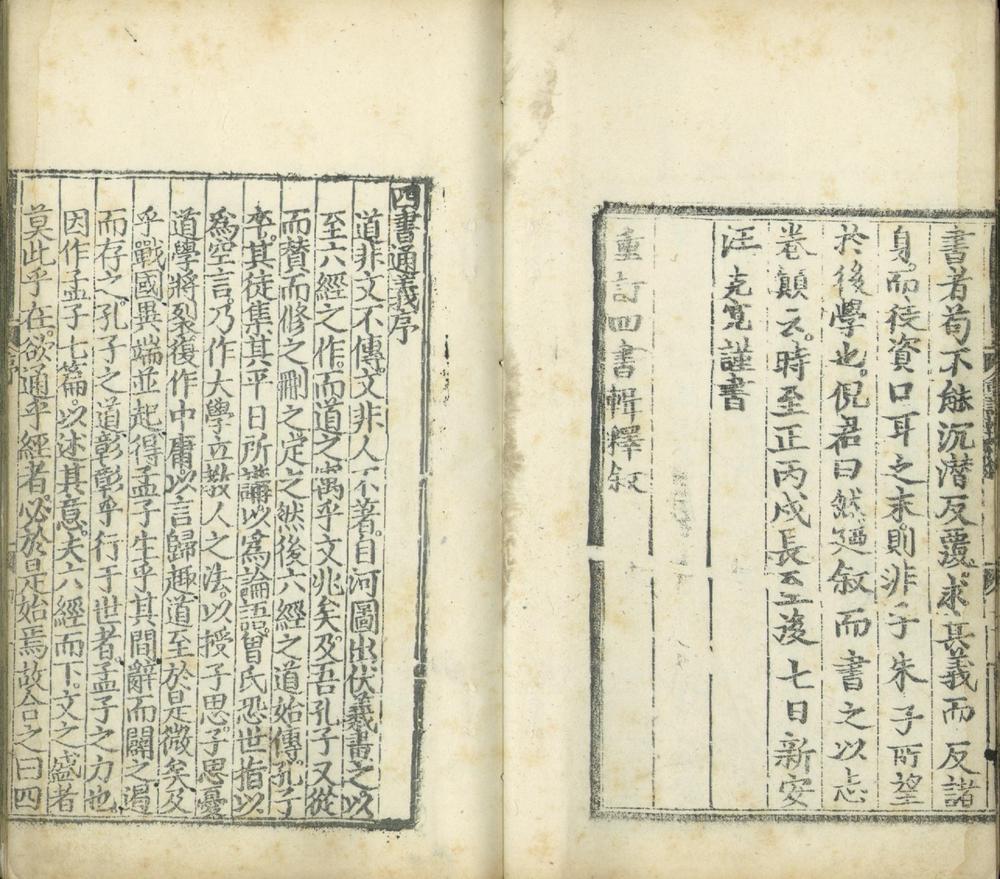 書者苟不能沉潜反覆求其義而反諸
身而徒資口耳之末則非子朱子所望
於後學也倪君曰然廼叙而書之以志
卷顛云時至正丙戌長至後七日新安
汪克寬謹書
重訂四書輯釋叙
四書通義序
道非文不傳文非人不著自河圖出伏羲書之以
至六經之作而道之寓乎文兆矣及吾孔子又從
而贊而修之刪之定之然後六經之道始傳孔子
卒其徒集其平日所講以爲論語曾氏恐世指以
爲空言乃作大學立教人之法以授子思子思憂
道學將裂復作中庸以言歸趣道至於是微矣及
乎戰國異端並起得孟子生乎其間辭而闢之遏
而存之孔子之道彰彰乎行于世者孟子之力也
因作孟子七篇以述其意夫六經而下文之盛者
莫此乎在欲通乎經者必於是始焉故合之曰四